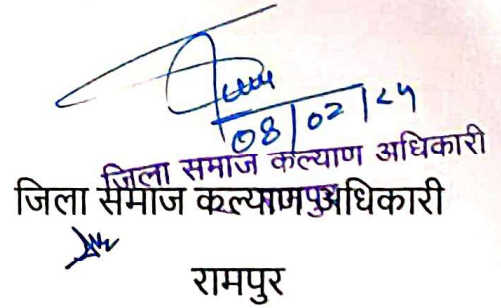 08/02/24
जिला समाज कल्याण अधिकारी
जिला समाज कल्याण अधिकारी
रामपुर